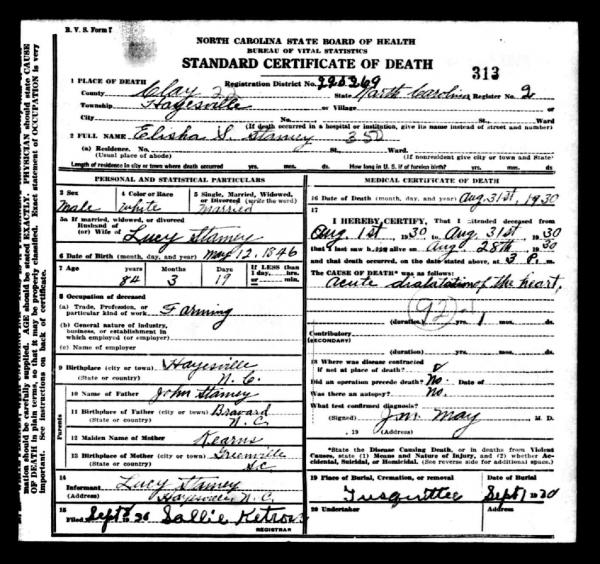 B. V. S. Form 7
NORTH CAROLINA STATE BOARD OF HEALTH
BUREAU OF VITAL STATISTICS
STANDARD CERTIFICATE OF DEATH
313
1 PLACE OF DEATH
Registration District No.
County Clay State North Carolina Register No. 2
Township Hayesville or Village
City No. St., Ward
(If death occurred in a hospital or institution, give its name instead of street and number)
2 FULL NAME Elisha S. Stamey
(a) Residence. No. St., Ward.
(Usual place of abode) (If nonresident give city or town and State)
Length of residence in city or town where death occurred yrs. mos. ds. How long in U. S. if of foreign birth? yrs. mos. ds.
PERSONAL AND STATISTICAL PARTICULARS
3 Sex 4 Color or Race 5 Single, Married, Widowed, or Divorced (write the word)
Male White Married
5a If married, widowed, or divorced
Husband of
(or) Wife of Lucy Stamey
6 Date of Birth (month, day, and year) May 12, 1846
7 Age Years Months Days If LESS than
1 day, hrs.
or min.
84 3 19
8 Occupation of deceased
(a) Trade, Profession, or
particular kind of work Farming
(b) General nature of industry,
business, or establishment in
which employed (or employer)
(c) Name of employer
9 Birthplace (city or town) Hayesville
(State or country) N. C.
Parents
10 Name of Father John Stamey
11 Birthplace of Father (city or town) Bravard
(State or country) N. C.
12 Maiden Name of Mother Kearns
13 Birthplace of Mother (city or town) Greenville
(State or country) S.C
14
Informant Lucy Stamey
(Address) Hayesville N. C.
15
Filed Sept Sallie Ketron
REGISTRAR
MEDICAL CERTIFICATE OF DEATH
16 Date of Death (month, day, and year) Aug. 31st, 1930
17
I HEREBY CERTIFY, That I attended deceased from
Aug 1st 1930 to Aug 31st 1930
that I last saw h alive on Aug 28th 1930
and that death occurred, on the date stated above, at 3 P. m.
The CAUSE OF DEATH* was as follows:
Acute dialatation of the heart,
92
(duration) yrs. 1 mos. ds.
Contributory
(SECONDARY)
(duration) yrs. mos. ds.
18 Where was disease contracted
if not at place of death?
Did an operation precede death? No. Date of
Was there an autopsy? No.
What test confirmed diagnosis?
(Signed) J.M. May M. D.
, 19 (Address)
*State the Disease Causing Death, or in deaths from Violent
Causes, state (1) Means and Nature of Injury, and (2) whether Accidental, Suicidal, or Homicidal. (See reverse side for additional space.)
19 Place of Burial, Cremation, or removal Date of Burial
Tusquittee Sept 1 1930
20 Undertaker Address
mation should be carefully supplied. AGE should be stated EXACTLY. PHYSICIAN should state CAUSE
OF DEATH in plain terms, so that it may be properly classified. Exact statement of OCCUPATION is very
important. See instructions on back of certificate.